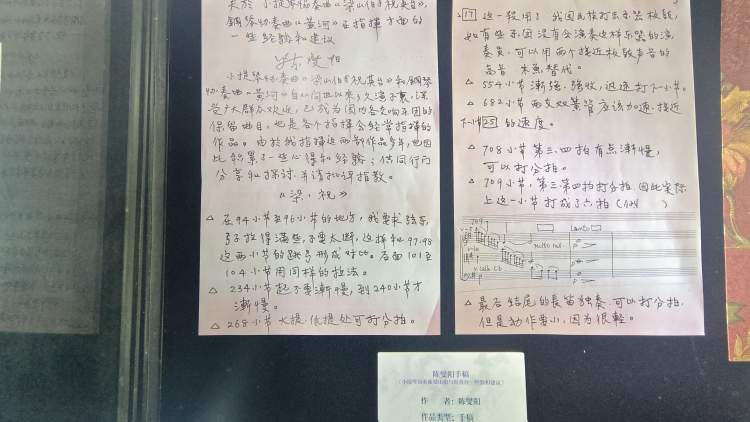 关於 小提琴协奏曲《梁山伯与祝英台》,
鋼琴协奏曲《黄河》在指揮方面的
一些经驗和建议
陈燮阳
小提琴协奏曲《梁山伯与祝英台》和鋼琴
协奏曲《黄河》自从问世以来,久演不衰,深
受广大群众欢迎,已成为国内各交响乐团的
保留曲目,也是各个指揮会经常指揮的
作品。由於我指揮这两部作品多年,也因
此积累了一些心得和经驗;供同行们
分享和探讨,并请批评指教。
《梁、祝》
△ 在94小节至96小节的地方,我要求弦乐
弓子拉得满些,不要太断,这样和97.98
这两小节的跳弓形成对比。后面101至
104小节用同样的拉法。
△ 234小节起不要漸慢,到240小节才
漸慢。
△ 268小节大提.低提处可打分拍。
△ 17 这一段用了我国民族打击乐器板鼓,
如有些乐团没有会演奏这样乐器的演
奏员,可以用两个接近板鼓声音的
高音木魚替代。
△ 554小节漸强.强收,迅速打下小节。
△ 682小节两支双簧管应该加速.接近
下小节25的速度。
△ 708小节第三.四拍有点漸慢,
可以打分拍。
△ 709小节,第三第四拍打分拍.因此实际
上这一小节打成了六拍(
709
Lento
molto rit.
△ 最后结尾的長笛独奏.可以打分拍.
但是动作要小,因为很輕。
陈燮阳手稿
作 者:陈燮阳
作品类型:手稿